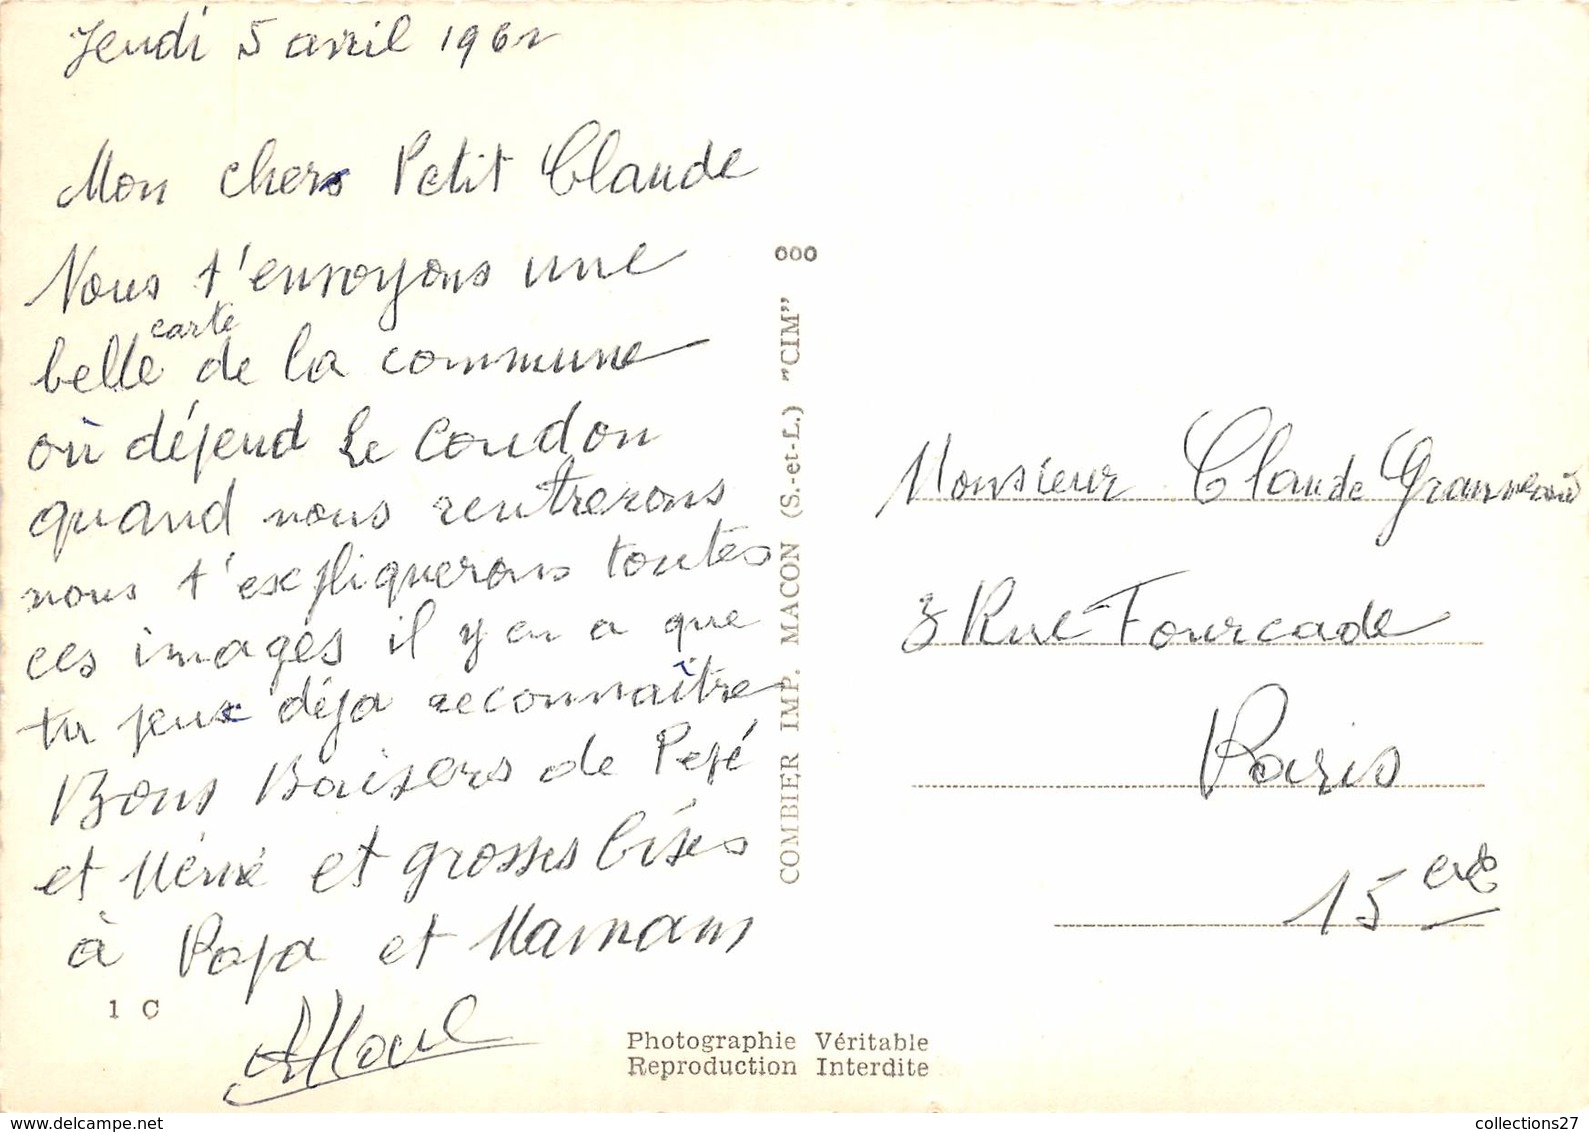 Jeudi 5 avril 1962
Mon cher Petit Claude
Nous t'envoyons une
belle carte de la commune
où dépend Le Coudon
quand nous rentrerons
nous t'expliquerons toutes
ces images il y en a que
tu peux déja reconnaître
Bons Baisers de Pepé
et Mémé et grosses bises
à Papa et Maman
1 C
000
COMBIER IMP. MACON (S.-et-L.) "CIM"
Photographie Véritable
Reproduction Interdite
Monsieur Claude
3 Rue Fourcade
Paris
15 eme
www.delcampe.net
collections27